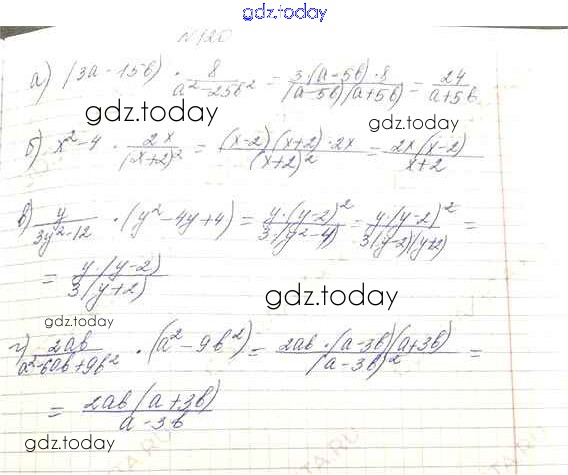 gdz.today
N 120
а) (3a-15b) · 8/(a²-25b²) = 3·(a-5b)·8/((a-5b)(a+5b)) = 24/(a+5b)
gdz.today
gdz.today
б) x²-4 · 2x/(x+2)² = (x-2)(x+2)·2x/(x+2)² = 2x(x-2)/(x+2)
в) y/(3y²-12) · (y²-4y+4) = y·(y-2)²/(3·(y²-4)) = y·(y-2)²/(3(y-2)(y+2)) =
= y·(y-2)/(3(y+2))
gdz.today
gdz.today
г) 2ab/(a²-6ab+9b²) · (a²-9b²) = 2ab·(a-3b)(a+3b)/(a-3b)² =
= 2ab(a+3b)/(a-3b)
gdz.today